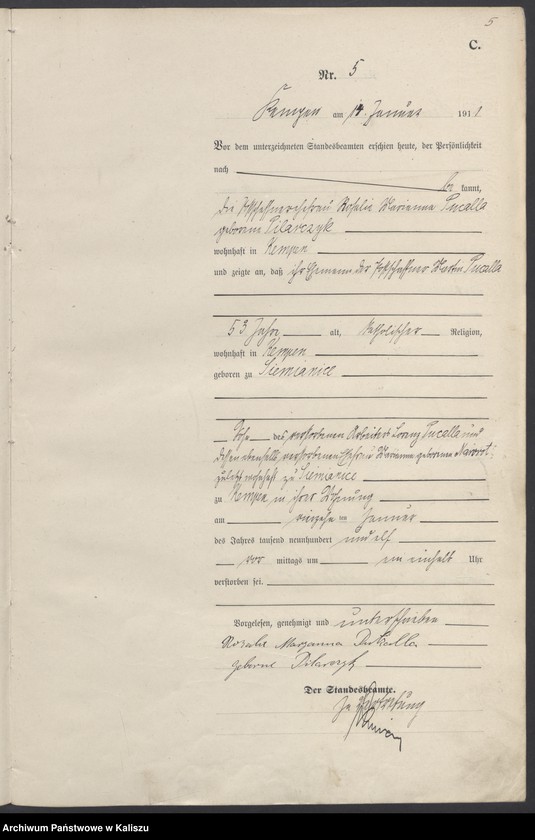 5
C.
Nr. 5
Kempen am 14. Januar 1911
Vor dem unterzeichneten Standesbeamten erschien heute, der Persönlichkeit
nach
be kannt,
die Postschaffnerehefrau Rosalie Marianna Pucalla
geborene Pilarczyk
wohnhaft in Kempen
und zeigte an, daß ihr Ehemann der Postschaffner Martin Pucalla
53 Jahre alt, katholischer Religion,
wohnhaft in Kempen
geboren zu Siemianice
Sohn des verstorbenen Arbeiters Lorenz Pucalla und
dessen ebenfalls verstorbenen Ehefrau Marianna geborenen
zuletzt wohnhaft zu Siemianice
zu Kempen in ihrer Wohnung
am vierzehn ten Januar
des Jahres tausend neunhundert und elf
vor mittags um ein einhalb Uhr
verstorben sei.
Vorgelesen, genehmigt und unterschrieben
Rosalie Maryanna
geborne Pilarczyk
Der Standesbeamte.
In Vertretung
Archiwum Państwowe w Kaliszu